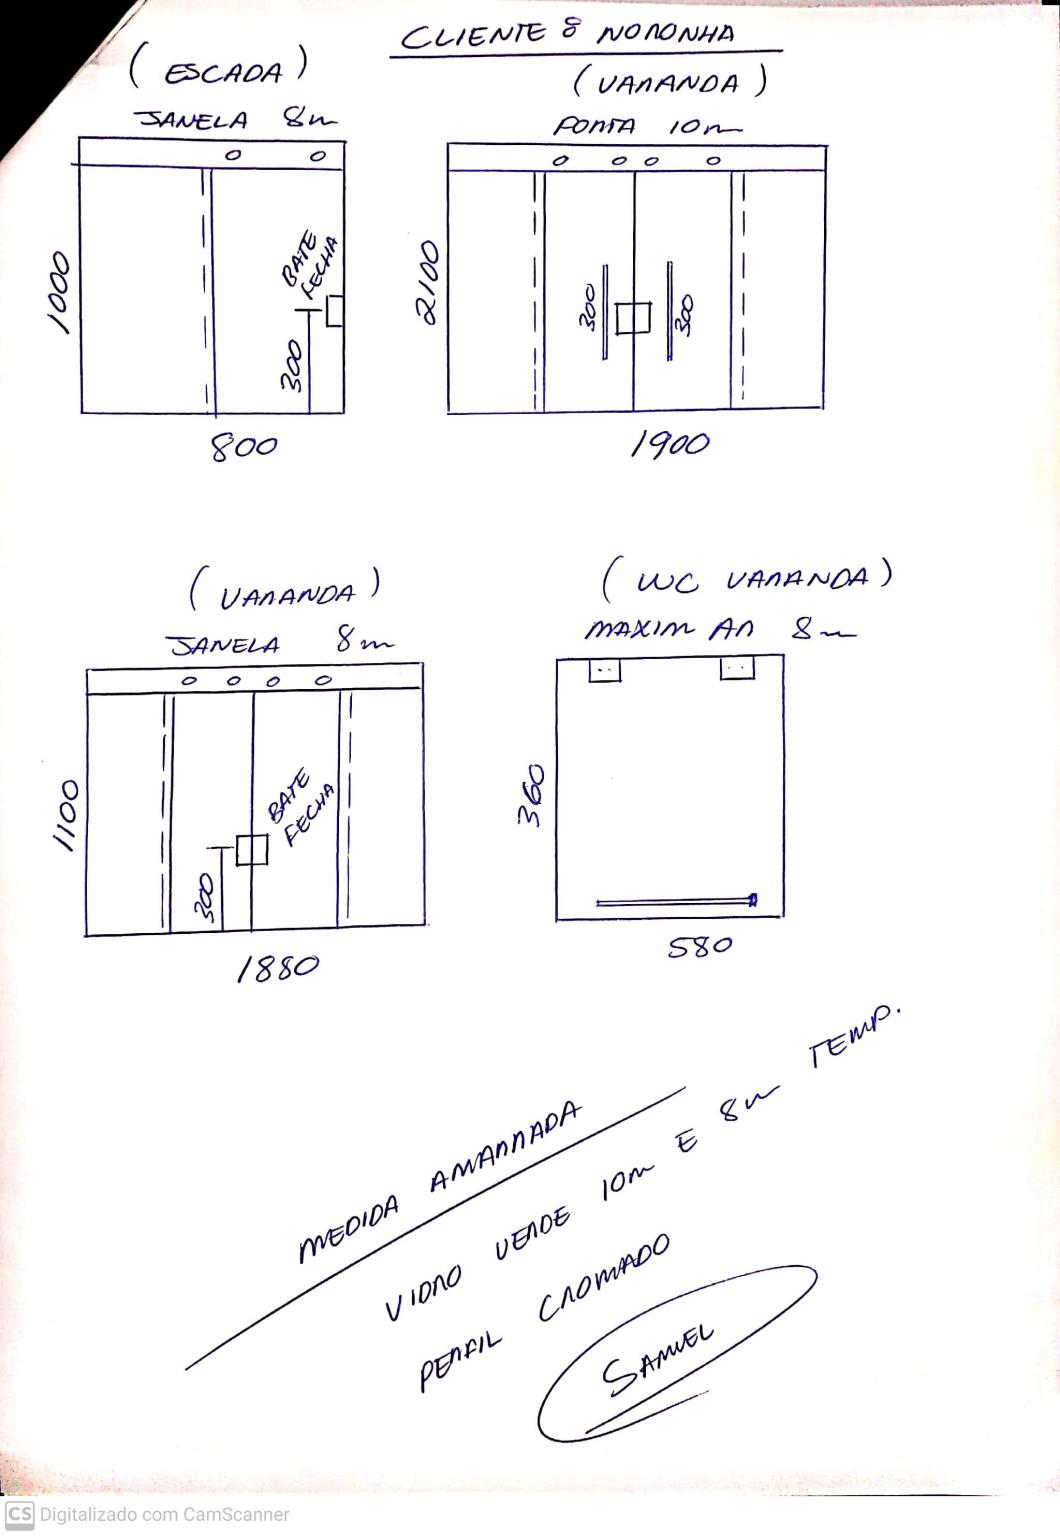 CLIENTE: NORONHA
(ESCADA)
JANELA 8m
BATE
FECHA
300
1000
800
(VARANDA)
PORTA 10m
300
300
2100
1900
(VARANDA)
JANELA 8m
BATE
FECHA
300
1100
1880
(WC VARANDA)
MAXIM AR 8m
360
580
MEDIDA AMARRADA
VIDRO VERDE 10m E 8m TEMP.
PERFIL CROMADO
SAMUEL
CS Digitalizado com CamScanner